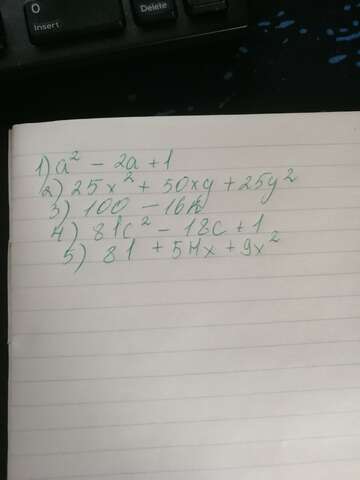 0
Insert
Delete
1) a² - 2a + 1
2) 25x² + 50xy + 25y²
3) 100 - 16
4) 81c² - 18c + 1
5) 81 + 54x + 9x²